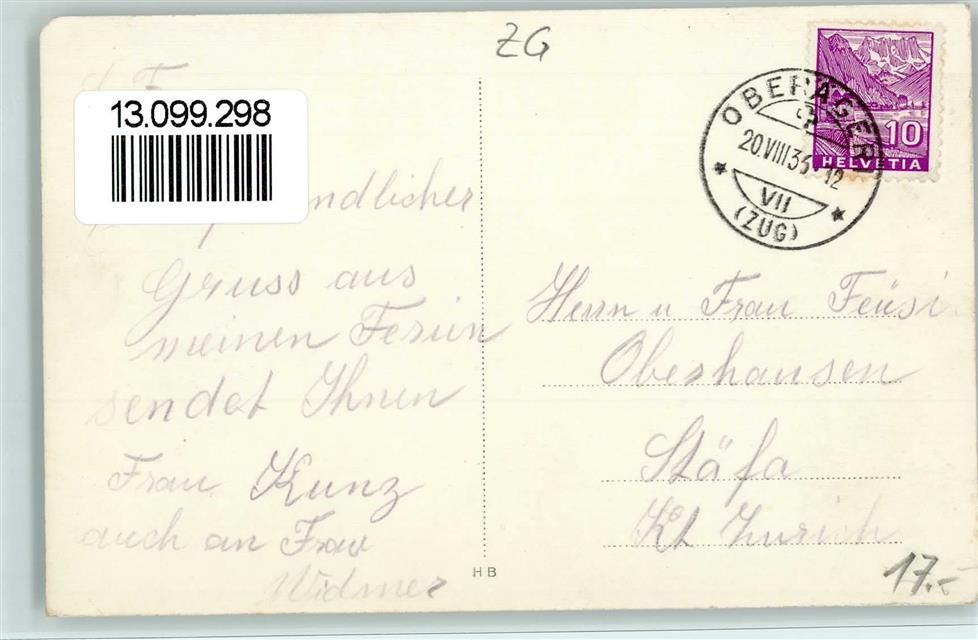 ZG
13.099.298
OBERÄGERI
20.VIII.35-12
VII
(ZUG)
10
HELVETIA
ndlicher
Gruss aus
meinen Ferien
sendet Ihnen
Frau Kunz
auch an Frau
Widmer
Herrn u Frau Feüsi
Oberhausen
Stäfa
Kt Zürich
HB
17.-